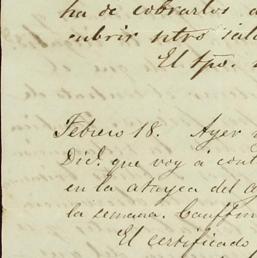 ha de cobrarlos a
cubrir ntro sal
El tpo.
Febrero 18. Ayer
Dic. que voy á cont
en la atayea del
la semana.
El certificado